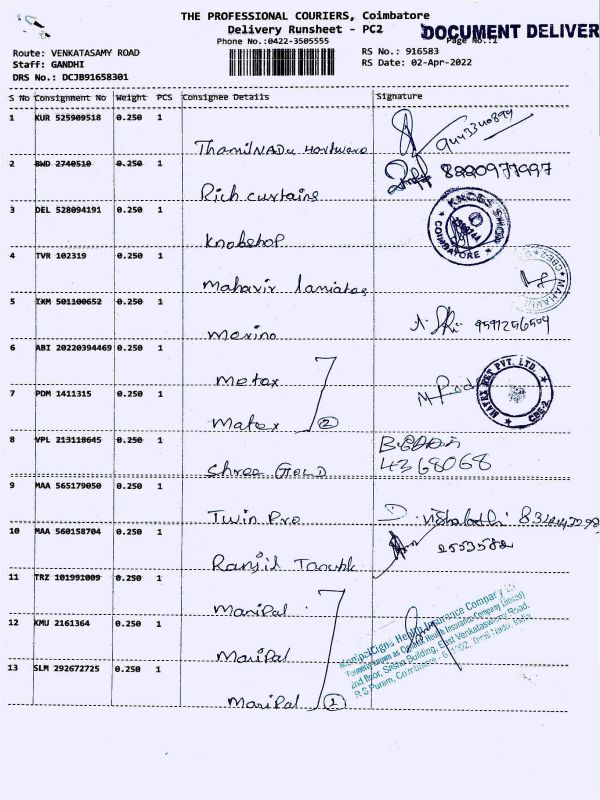 THE PROFESSIONAL COURIERS, Coimbatore
Delivery Runsheet - PC2
DOCUMENT DELIVER
Phone No.:0422-3505555
Page No.:1
Route: VENKATASAMY ROAD
Staff: GANDHI
DRS No.: DCJB91658301
RS No.: 916583
RS Date: 02-Apr-2022
S No Consignment No Weight PCS Consignee Details Signature
1 KUR 525909518 0.250 1
Thamilnadu Hardware
9443340899
2 BWD 2740510 0.250 1
8220977997
Rich curtains
3 DEL 528094191 0.250 1
KNOBS SHOP
COIMBATORE
Knobshop
4 TVR 102319 0.250 1
Mahavir
CBE-2
MAHAVIR
5 IXM 501100652 0.250 1
9591256504
Merino
6 ABI 20220394469 0.250 1
Metax
MATEX NET PVT. LTD.
CBE-2
7 PDM 1411315 0.250 1
Matex 2
8 VPL 213118645 0.250 1
4368068
Shree Gold
9 MAA 565179050 0.250 1
Twin Pro
D. Vishalatchi
10 MAA 560158704 0.250 1
2553582
Ranjit
11 TRZ 101991009 0.250 1
Manipal
12 KMU 2161364 0.250 1
Manipal
ManipalCigna Health Insurance Company
(Formerly known as CignaTTK Health Insurance Company Limited)
2nd Floor, Sasha Building, East Venkataswamy Road,
R S Puram, Coimbatore - 641002, Tamil Nadu, India
13 SLM 292672725 0.250 1
Manipal 2